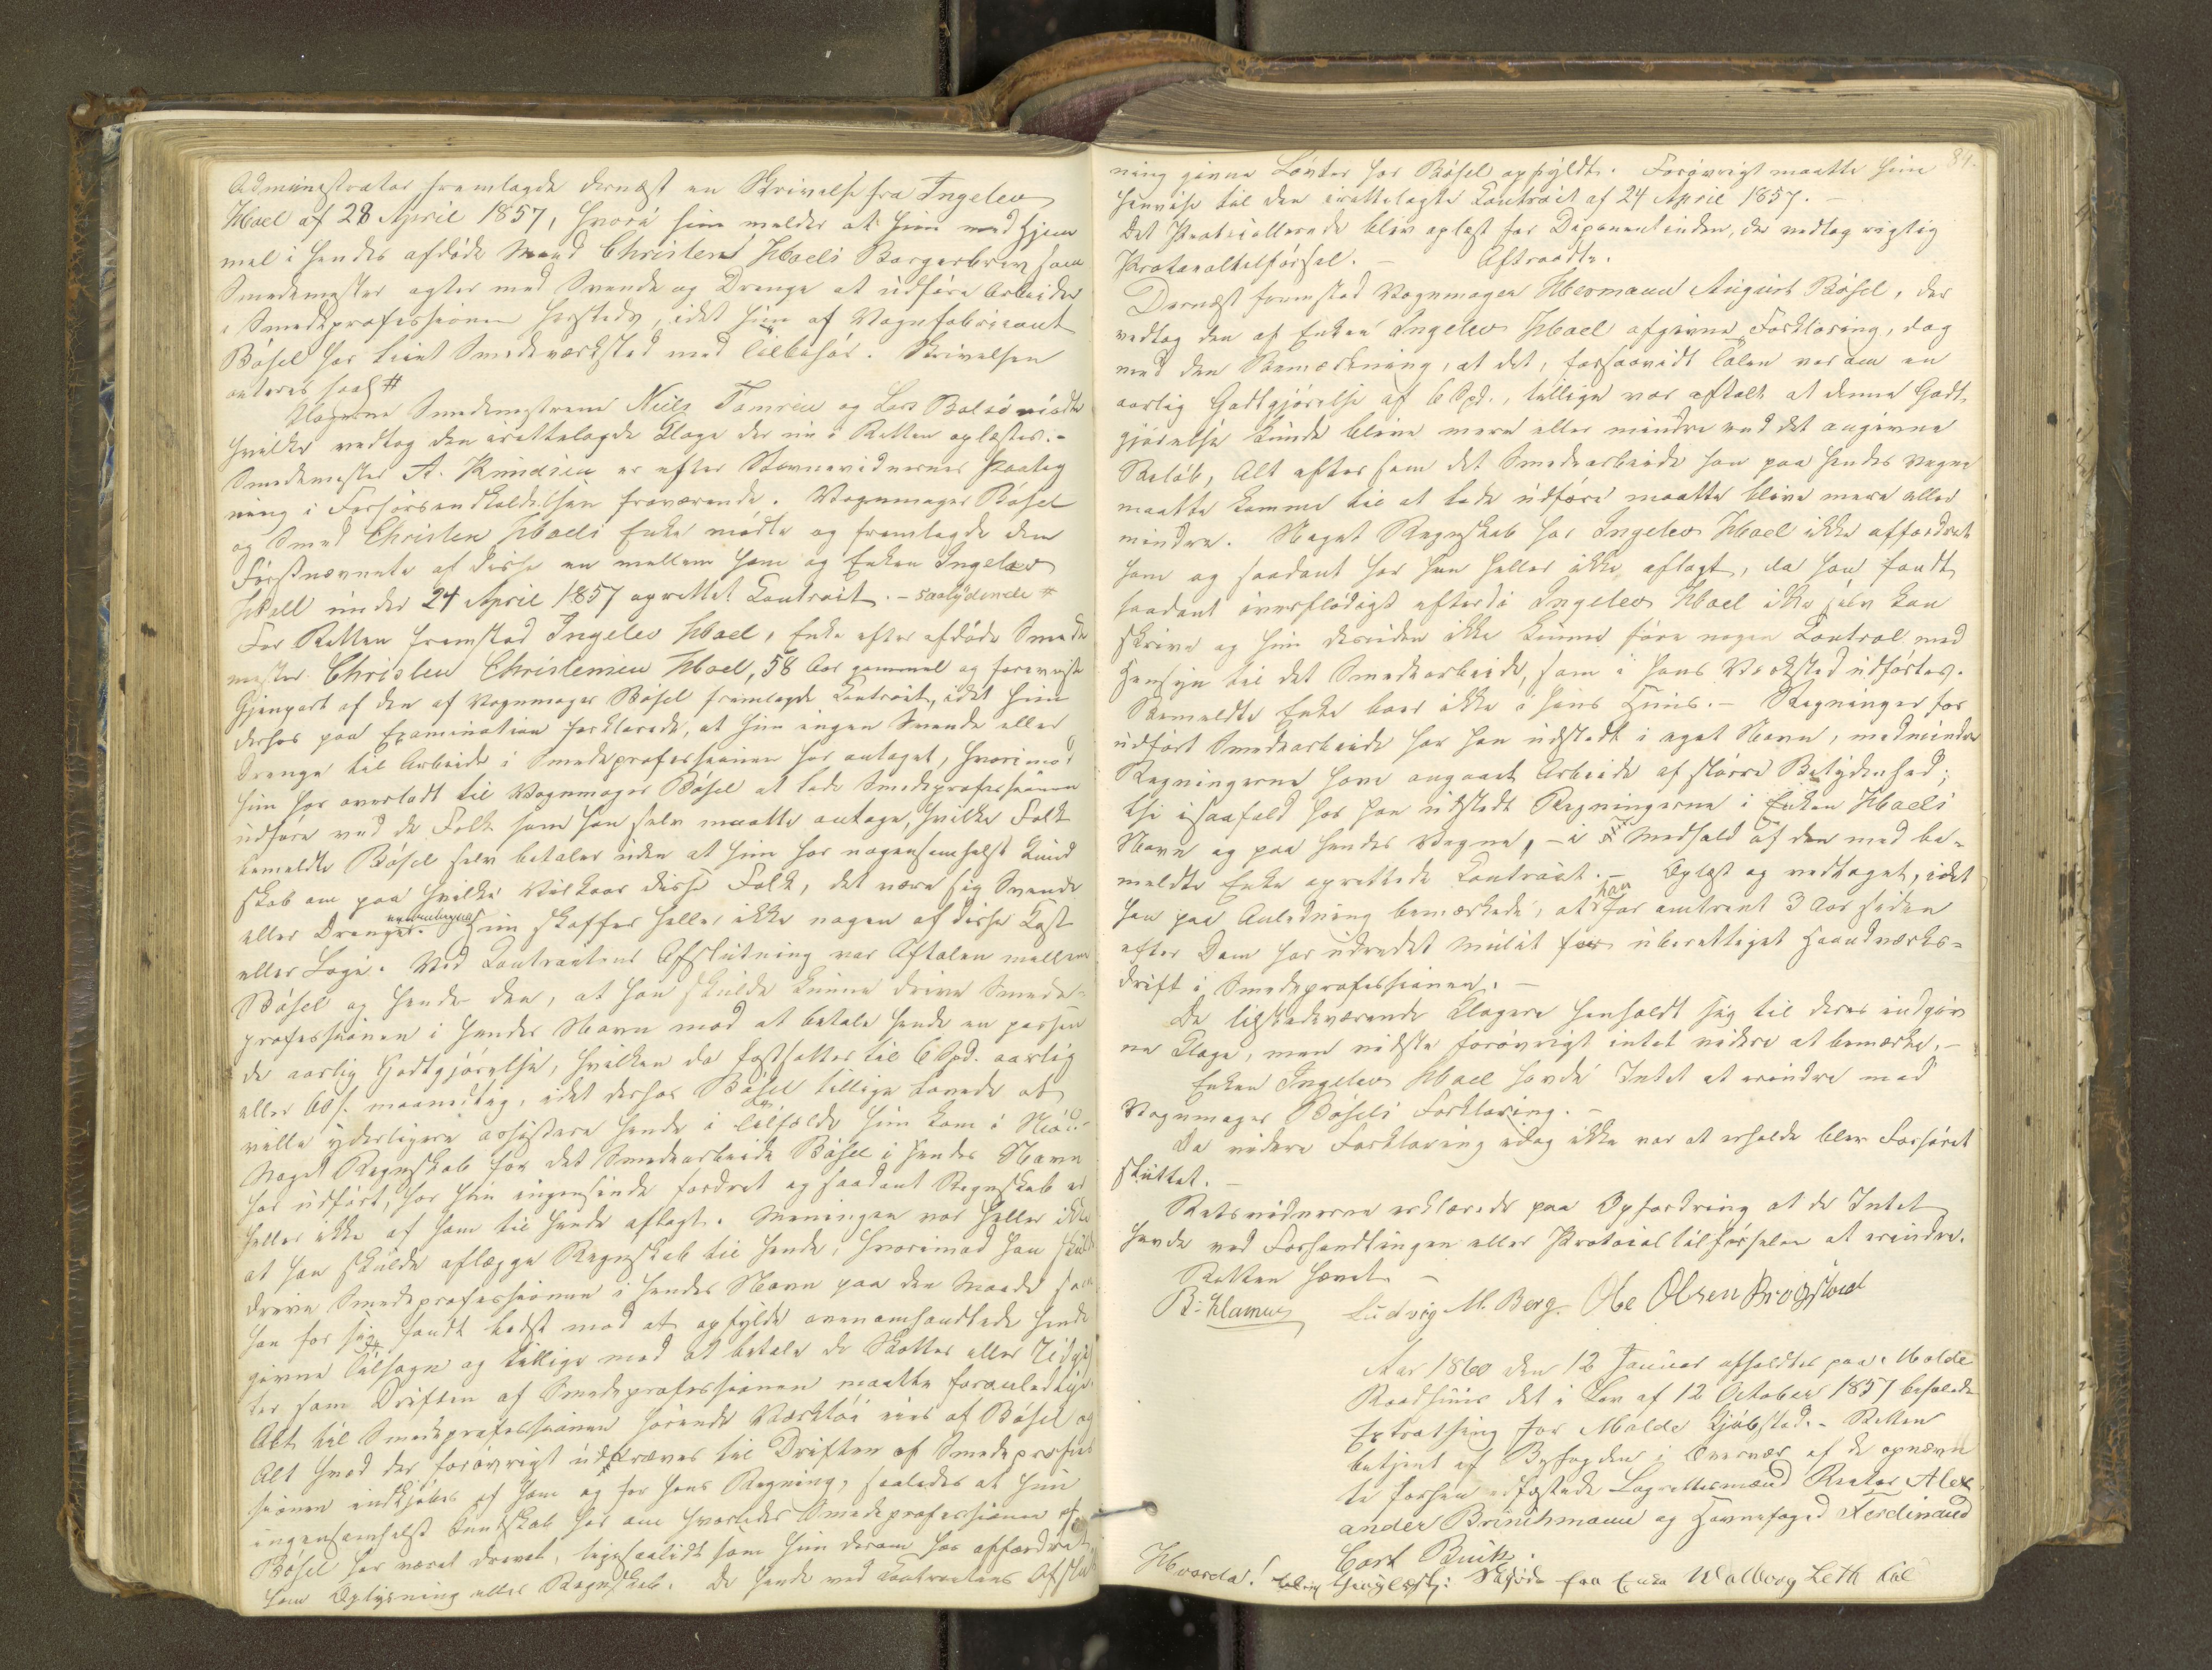 Administrator fremlagde dernæst en Skrivelse fra Ingelev
Hoel af 28 April 1857, hvori hun melder at hun med Hjem
mel i hendes afdøde Mand Christen Hoels Borgerbrev som
Smedemester agter med Svende og Drenge at udføre Arbeider
i Smedeprofessionen herstedv, idet hun af Vognfabricant
Bösel har leiet Smedeværksted med Tilbehør. Skrivelsen
anteres saal #
Klagerne Smedemestrene Niels Tomren og Lars Bolsö mödte
hvilke vedtog den irettelagde Klage der nu i Retten oplæstes. -
Smedemester A. Knudsen er efter Stevnevidnernes Paateg
ning i Forhørsanstaldelsen fraværende. Vognmager Bösel
og Smed Christen Hoels Enke mødte og fremlagde den
Førstnævnte af disse en mellem ham og Enken Ingelev
Hoell under 24 April 1857 oprettet Contract. - saalydende #
For Retten fremstod Ingelev Hoel, Enke efter afdøde Smede
mester Christen Christensen Hoel, 58 Aar gammel og foreviste
Gjenpart af den af Vognmager Bösel fremlagde Contract, idet hun
derhos paa Examination forklarede, at hun ingen Svende eller
Drenge til Arbeide i Smedeprofessionen har antaget, hvorimod
hun har overladt til Vognmager Bösel at lade Smedeprofessionen
udføre ved de Folk som han selv maatte antage, hvilke Folk
bemeldte Bösel selv betaler uden at hun har nogensomhelst Kund
skab om paa hvilke Vilkaar disse Folk, det være sig Svende
eller Drenge. Hun skaffer heller ikke nogen af disse Kost
eller Logi. Ved Contractens Afslutning var Aftalen mellem
Bösel og hende den, at han skulde kunne drive Smede-
professionen i hendes Navn mod at betale hende en passen
de aarlig Godtgjørelse, hvilken da fastsattes til 6 Spd. aarlig
eller 60 s. maanedlig, idet derhos Bösel tillige lovede at
ville yderligere assistere hende i Tilfælde hun kom i Nød. -
Noget Regnskab for det Smedearbeide Bösel i hendes Navn
har udført, har hun ingensinde fordret og saadant Regnskab er
heller ikke af ham til hende aflagt. Meningen var heller ikke
at han skulde aflægge Regnskab til hende, hvorimod han skulde
drive Smedeprofessionen i hendes Navn paa den Maade som
han for sig fandt bedst mod at opfylde ovenomhandlede hende
givne Tilsagn og tillige mod at betale de Skatter eller Udgif
ter som Driften af Smedeprofessionen maatte foranledige.
Alt til Smedeprofessionen hørende Værktøi eies af Bösel og
Alt hvad der forøvrigt udkræves til Driften af Smedeprofes
sionen indkjøbes af ham og for hans Regning, saaledes at hun
ingensomhelst Kundskab har om hvorledes Smedeprofessionen af
Bösel har været drevet, ligesaalidt som hun derom har affordret
ham Oplysning eller Regnskab. De hende ved Contractens Afslut
84.
ning givne Løvter har Bösel opfyldt. Forøvrigt maatte hun
henvise til den irettelagte Contract af 24 April 1857. -
Det Protocollerede blev oplæst for Deponentinden, der vedtog rigtig
Protocoltilførsel. - Aftraadte.
Dernæst fremstod Vognmager Hermann August Bösel, der
vedtog den af Enken Ingelev Hoel afgivne Forklaring, dog
med den Bemærkning, at det, forsaavidt Talen var om en
aarlig Godtgjørelse af 6 Spd., tillige var aftalt at denne Godt-
gjørelse kunde blive mere eller mindre end det angivne
Beløb, Alt efter som det Smedearbeide han paa hendes Vegne
maatte komme til at lade udføre maatte blive mere eller
mindre. Noget Regnskab har Ingelev Hoel ikke affordret
ham og saadant har han heller ikke aflagt, da han fandt
saadant overflødigt efterdi Ingelev Hoel ikke selv kan
skrive og hun desuden ikke kunne føre nogen Control med
Hensyn til det Smedearbeide, som i hans Værksted udførtes.
Bemeldte Enke boer ikke i hans Huus. - Regninger for
udført Smedearbeide har han udstedt i eget Navn, medmindre
Regningerne have angaaet Arbeide af større Betydenhed;
thi isaafald har han udstedt Regningerne i Enken Hoels
Navn og paa hendes Vegne, - i Medhold af den med be-
meldte Enke oprettede Contract. - Oplæst og vedtaget, idet
han paa Anledning bemærkede, at han for omtrent 3 Aar siden
efter Dom har udredet Mulct for uberettiget Haandværks-
drift i Smedeprofessionen. -
De tilstedeværende Klagere henholdt sig til deres indgiv
ne Klage, men vidste forøvrigt intet videre at bemærke. -
Enken Ingelev Hoel havde Intet at erindre mod
Vognmager Bösels Forklaring. -
Da videre Forklaring idag ikke var at erholde blev Forhøret
sluttet. -
Retsvidnerne erklærede paa Opfordring at de Intet
havde ved Forhandlingen eller Protocoltilførselen at erindre.
Retten hævet -
Ludvig M. Berg. Ole Olsen Brogstad
Aar 1860 den 12 Januar afholdtes paa Molde
Raadhuus det i Lov af 12 October 1857 befalede
Extrathing for Molde Kjøbsted. - Retten
betjent af Byfogden i Overvær af de opnævn
te forhen edfæstede Lagrettesmænd Reator Alex
ander Brinchmann og Havnefoged Ferdinand
Carl Buch.
Hvorda! blev thinglæst: Skjøde fra Enke Walborg Leth til